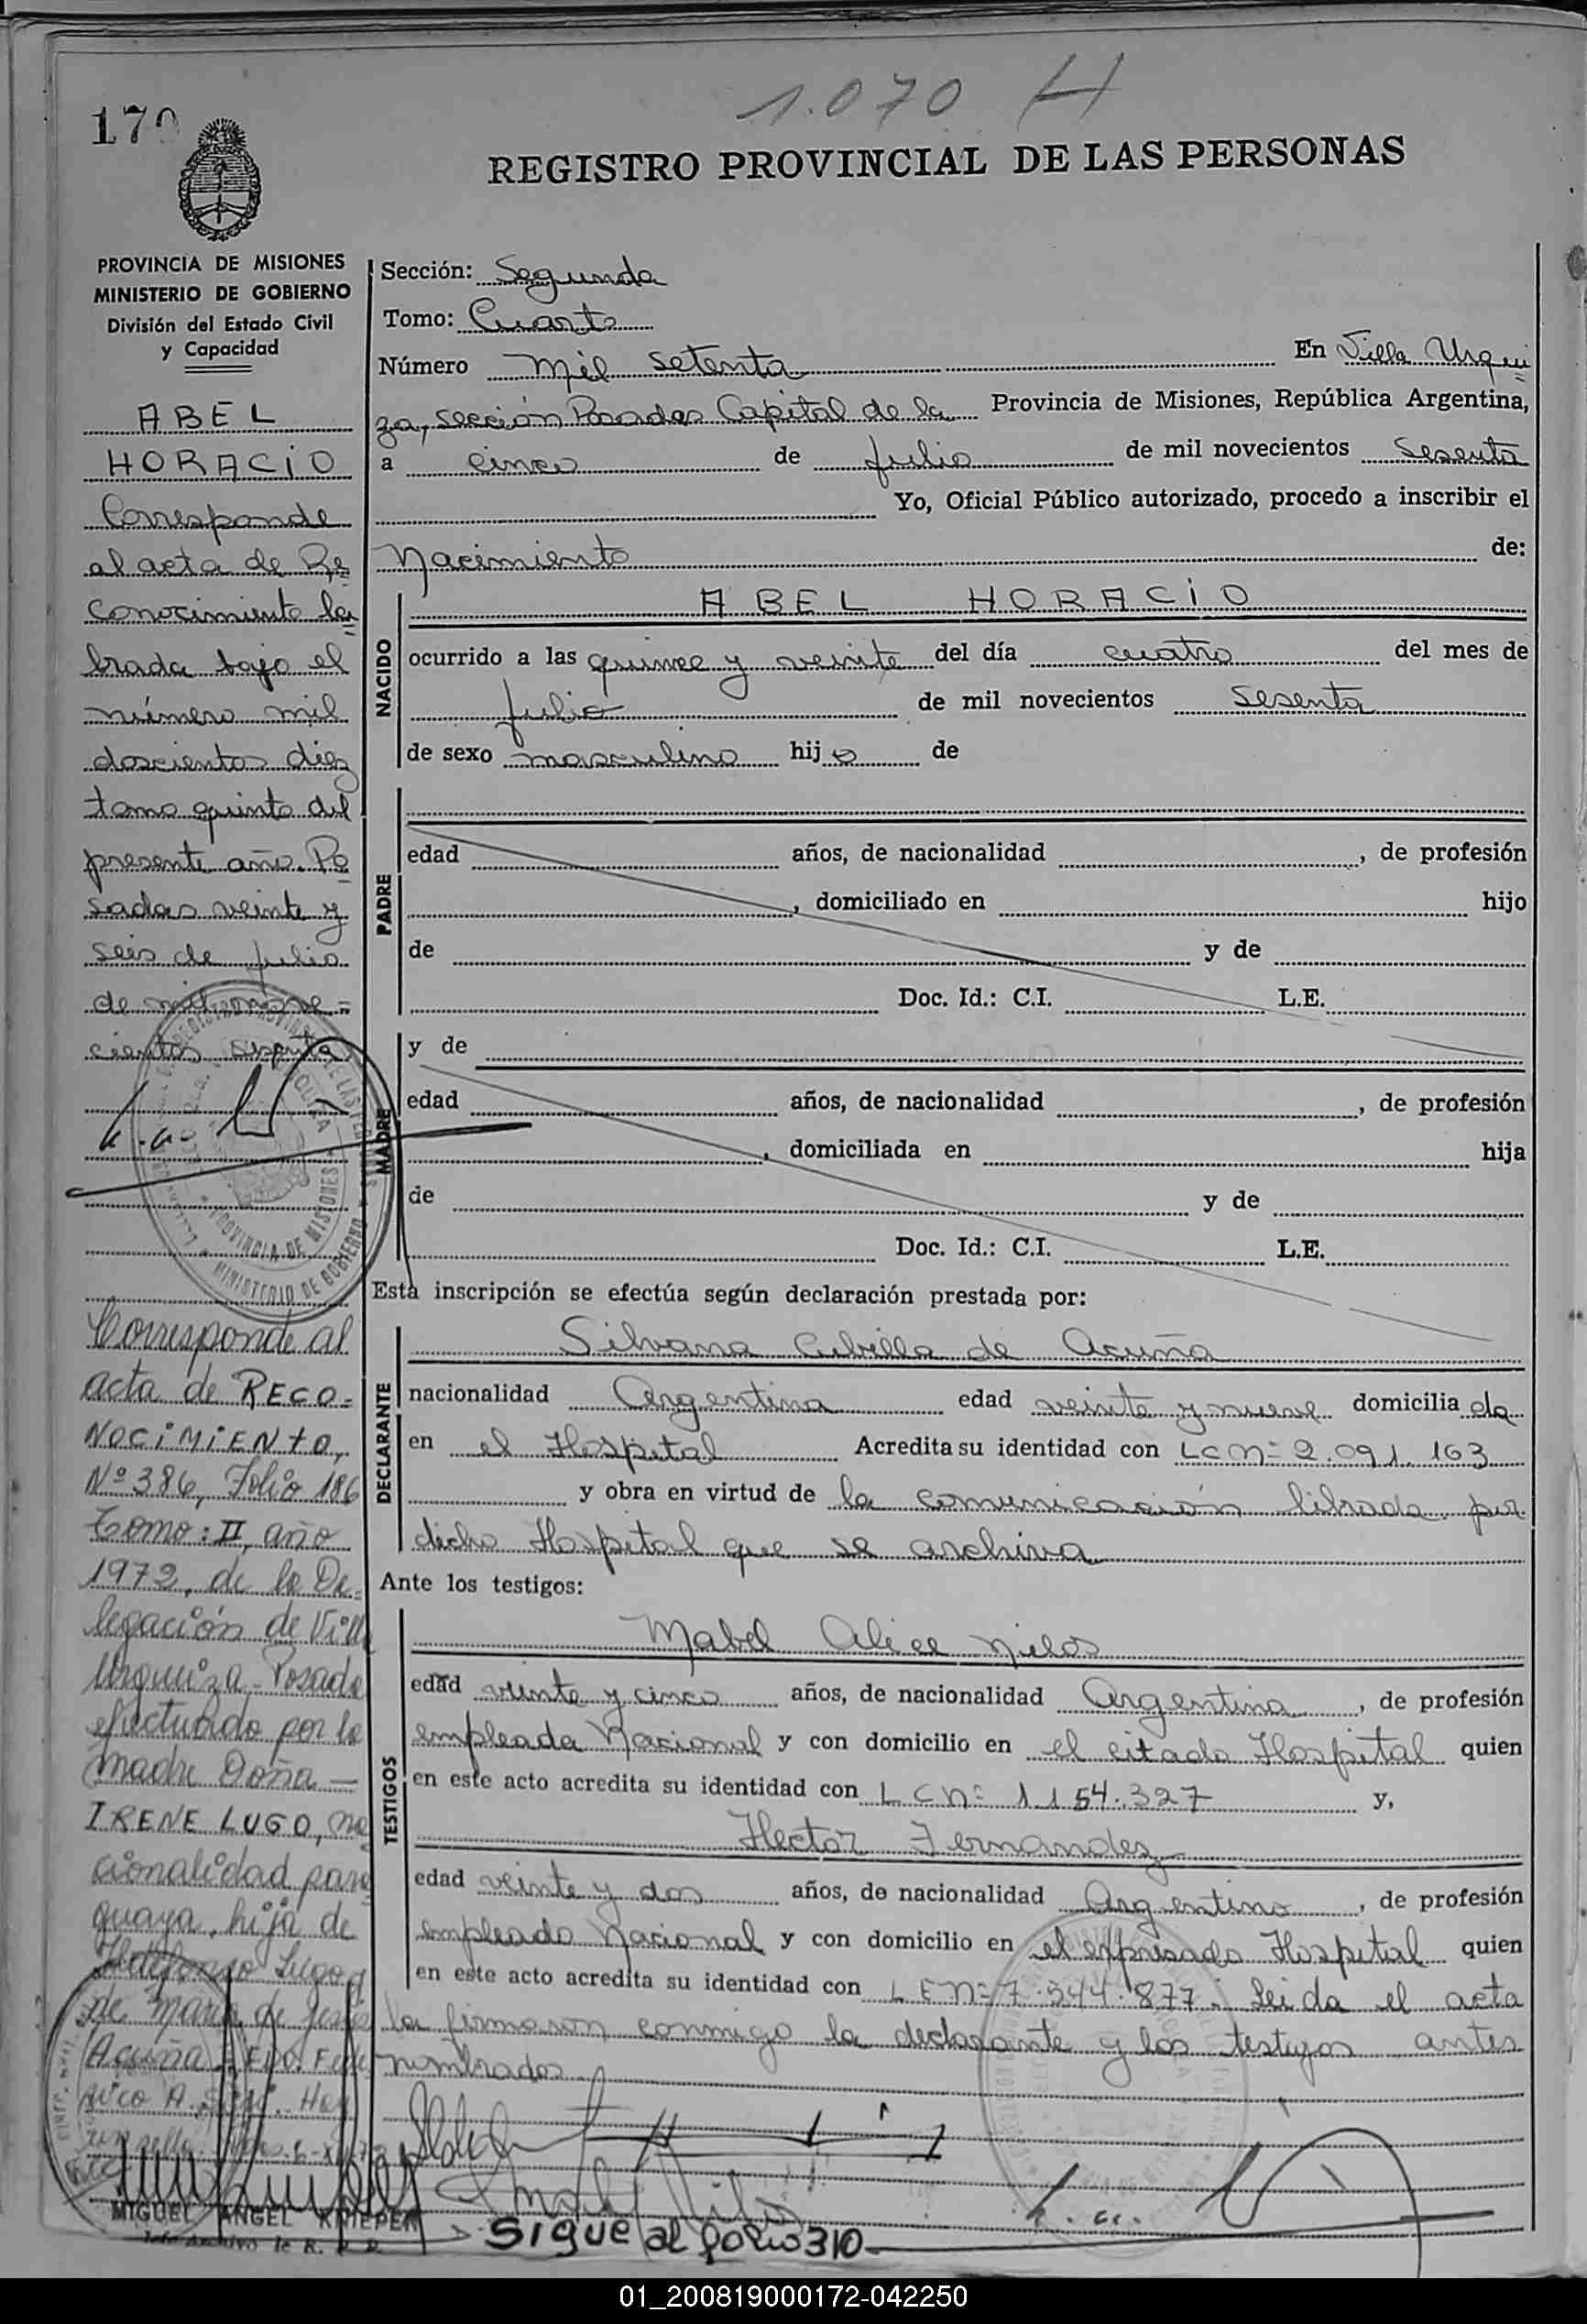 1.070 H
170
REGISTRO PROVINCIAL DE LAS PERSONAS
PROVINCIA DE MISIONES
MINISTERIO DE GOBIERNO
División del Estado Civil
y Capacidad
ABEL
HORACIO
Corresponde
al acta de Re
conocimiento la
brada bajo el
número mil
doscientos diez
tomo quinto del
presente año. Po
sadas veinte y
seis de julio
de mil nove=
cientos sesenta
Corresponde al
acta de RECO=
NOCIMIENTO,
Nº 386, Folio 186
Tomo: II, año
1973, de la De=
legación de Villa
Urquiza - Posadas
efectuado por la
madre Doña —
IRENE LUGO, na
cionalidad para
guaya, hija de
Ildefonso Lugo y
de María de Jesús
Acuña
MIGUEL ANGEL KNIEPER
Sección: Segunda
Tomo: Cuarto
Número mil setenta En Villa Urqui
za, sección Posadas Capital de la Provincia de Misiones, República Argentina,
a cinco de julio de mil novecientos sesenta
Yo, Oficial Público autorizado, procedo a inscribir el
Nacimiento de:
NACIDO
ABEL HORACIO
ocurrido a las quince y veinte del día cuatro del mes de
julio de mil novecientos sesenta
de sexo masculino hijo de
PADRE
edad años, de nacionalidad , de profesión
, domiciliado en hijo
de y de
Doc. Id.: C.I. L.E.
MADRE
y de
edad años, de nacionalidad , de profesión
, domiciliada en hija
de y de
Doc. Id.: C.I. L.E.
Esta inscripción se efectúa según declaración prestada por:
DECLARANTE
Silvana Cubilla de Acuña
nacionalidad Argentina edad veinte y nueve domiciliada
en el Hospital Acredita su identidad con LC Nº 2.091.163
y obra en virtud de la comunicación librada por
dicho Hospital que se archiva
Ante los testigos:
TESTIGOS
Mabel Alice Nielos
edad veinte y cinco años, de nacionalidad Argentina, de profesión
empleada Nacional y con domicilio en el citado Hospital quien
en este acto acredita su identidad con LC Nº 1154.327 y,
Hector Fernandez
edad veinte y dos años, de nacionalidad Argentino, de profesión
empleado Nacional y con domicilio en el expresado Hospital quien
en este acto acredita su identidad con LE Nº 7.344.877. Leida el acta
la firmaron conmigo la declarante y los testigos antes
nombrados
Sigue al folio 310
01_200819000172-042250